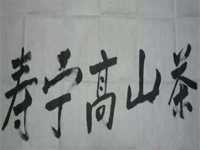 寿宁高山茶